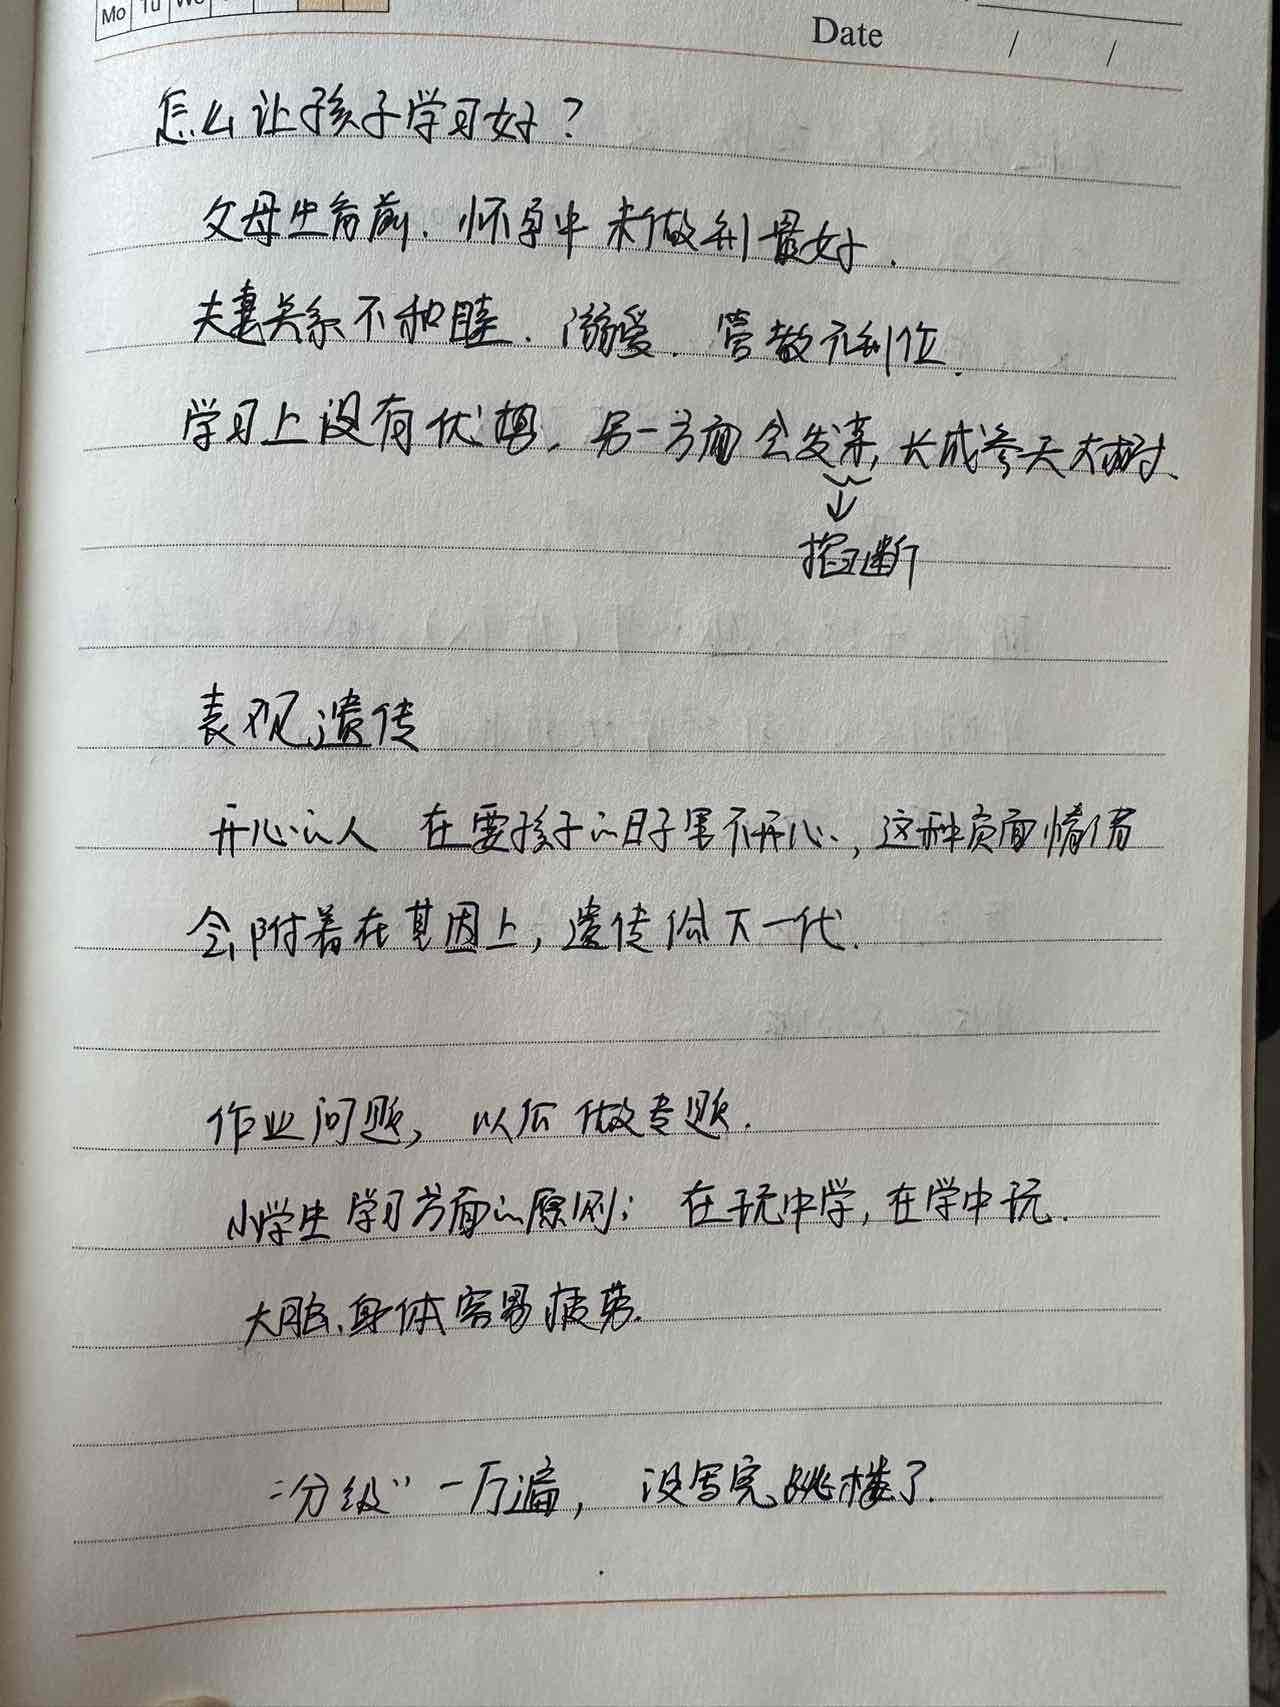 Mo Tu We
Date / /
怎么让孩子学习好？
父母生育前、怀孕中未做到最好.
夫妻关系不和睦、溺爱、管教不到位.
学习上没有优势，另一方面会发芽，长成参天大树、
↓
掐断
表观遗传
开心的人 在要孩子的日子里不开心，这种负面情绪
会附着在基因上，遗传给下一代.
作业问题，以后做专题.
小学生学习方面的原则：在玩中学，在学中玩.
大脑、身体容易疲劳.
“分级”一万遍，没写完跳楼了.